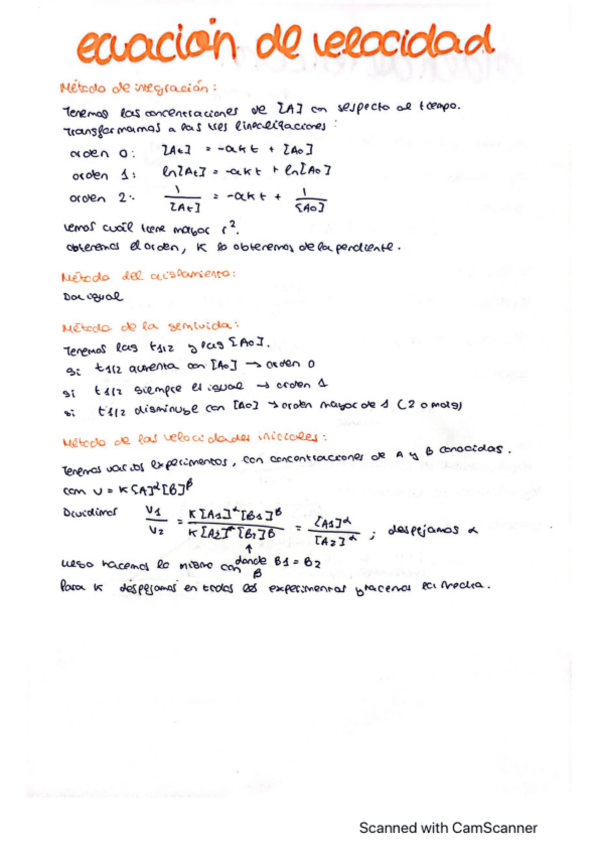 ecuación de velocidad
Método de integración:
Tenemos las concentraciones de [A] con respecto al tiempo.
Transformamos a las tres linealizaciones:
orden 0: [At] = -akt + [A0]
orden 1: ln[At] = -akt + ln[A0]
orden 2: 1/[At] = -akt + 1/[A0]
vemos cuál tiene mayor r².
obtenemos el orden, K lo obtenemos de la pendiente.
Método del aislamiento:
Da igual
Método de la semivida:
Tenemos las t1/2 y las [A0].
si t1/2 aumenta con [A0] → orden 0
si t1/2 siempre es igual → orden 1
si t1/2 disminuye con [A0] → orden mayor de 1 (2 o más)
Método de las velocidades iniciales:
Tenemos varios experimentos, con concentraciones de A y B conocidas.
con v = K[A]^α[B]^β
Dividimos V1/V2 = K[A1]^α[B1]^β / K[A2]^α[B2]^β = [A1]^α / [A2]^α ; despejamos α
↑
donde B1 = B2
luego hacemos lo mismo con β
Para K despejamos en todos los experimentos y hacemos la media.
Scanned with CamScanner